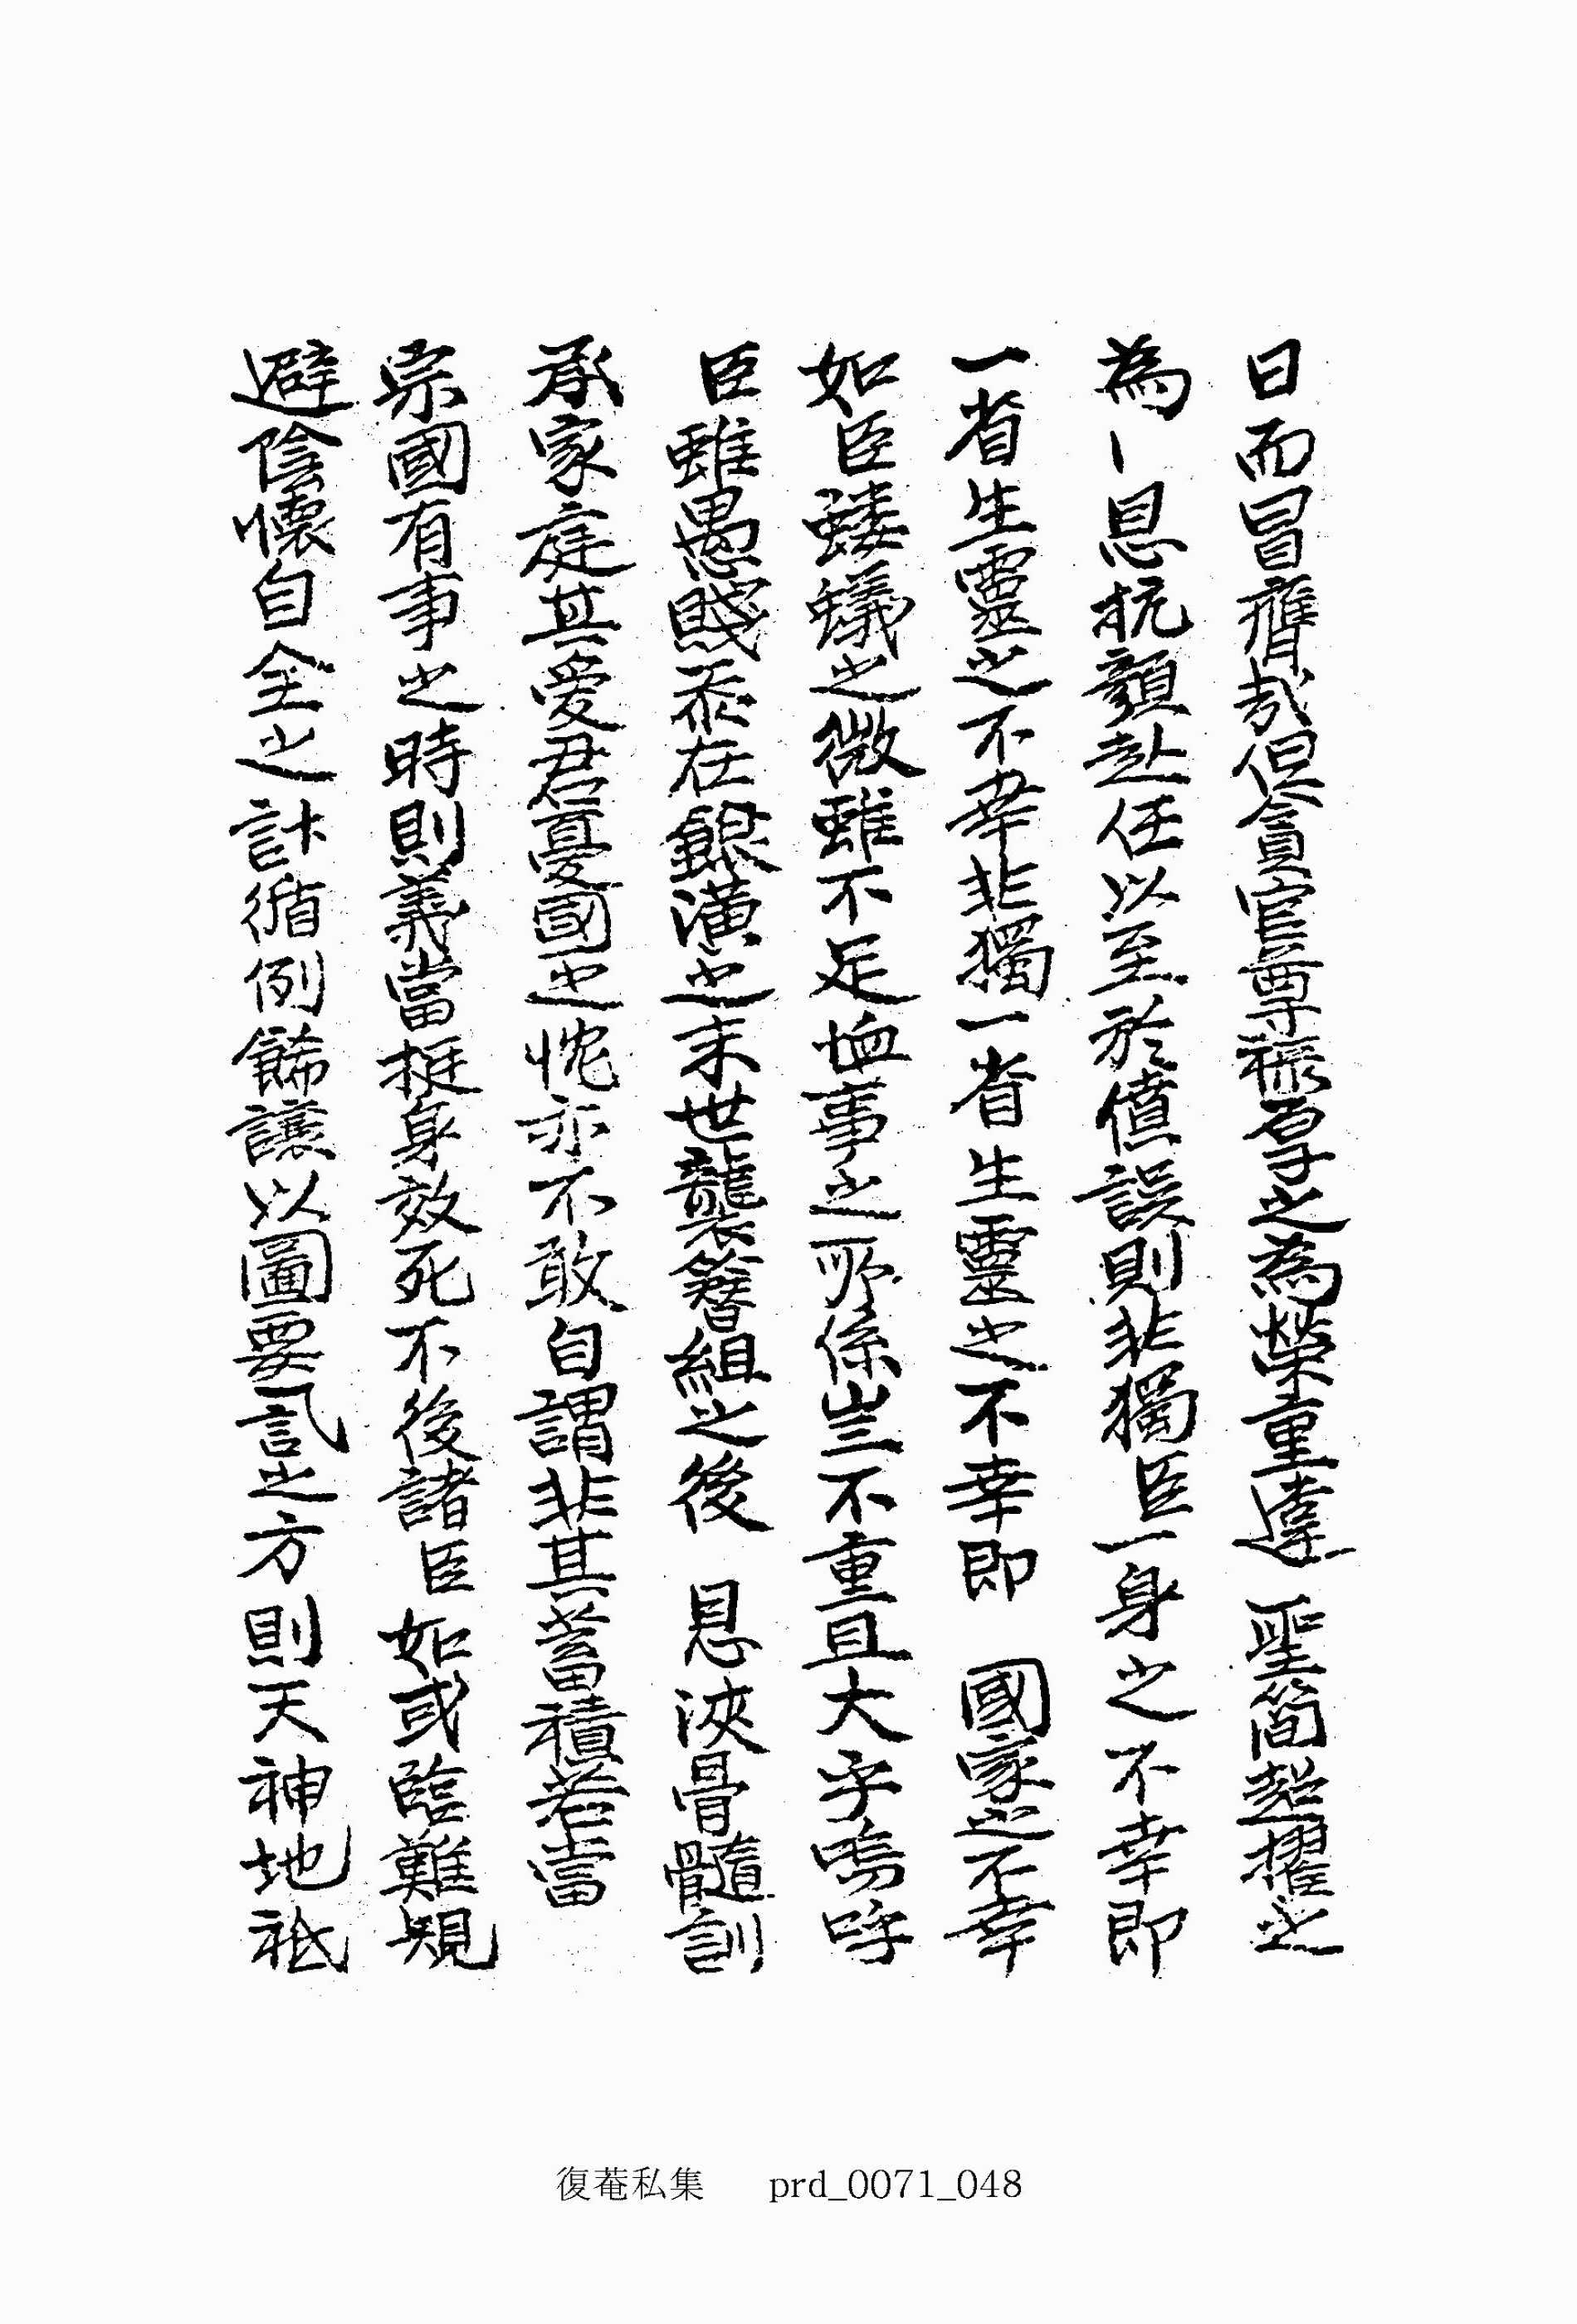 日而冒膺哉但貪官尊祿厚之為榮重違 聖簡超擢之
為 恩抗顔赴任以至於僨誤則非獨臣一身之不幸即
一省生靈之不幸非獨一省生靈之不幸即 國家之不幸
如臣螻蟻之微雖不足恤事之所係豈不重且大乎嗚呼
臣雖愚賤忝在銀潢之末世襲簪組之後 恩浹骨髓訓
承家庭其愛君憂國之忱亦不敢自謂非其蓄積若當
宗國有事之時則義當挺身效死不後諸臣如或臨難規
避陰懷自全之計循例飾讓以圖要譽之方則天神地祇
復菴私集 prd_0071_048